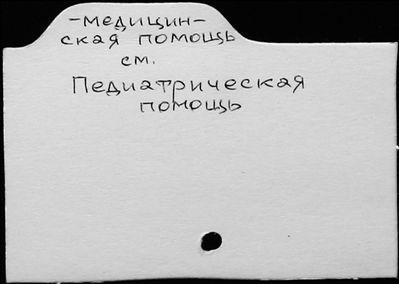 -медицин-
ская помощь
см.
Педиатрическая
помощь